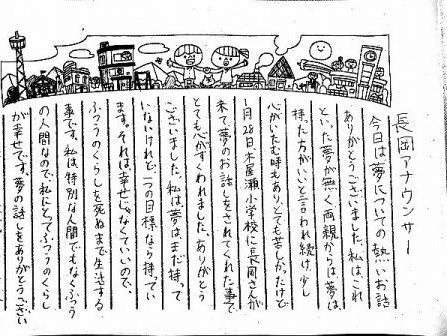 長岡アナウンサー
今日は夢についての熱いお話
ありがとうございました。私は、これ
といった夢が無く両親からは、夢は、
持った方がいいと言われ続け、少し
心がいたむ時もあり、とても苦しかったけど
1月28日、木屋瀬小学校に長岡さんが
来て、夢のお話しをされてくれた事で
とても心がすくわれました。ありがとう
ございました。私は、夢は、まだ持って
いないけれど、一つの目標なら持ってい
ます。それは、幸せじゃなくていいので、
ふつうのくらしを死ぬまで生活する
事です。私は、特別な人間でもなくふつう
の人間なので、私にとってふつうのくらし
が幸せです。夢の話しをありがとうござい